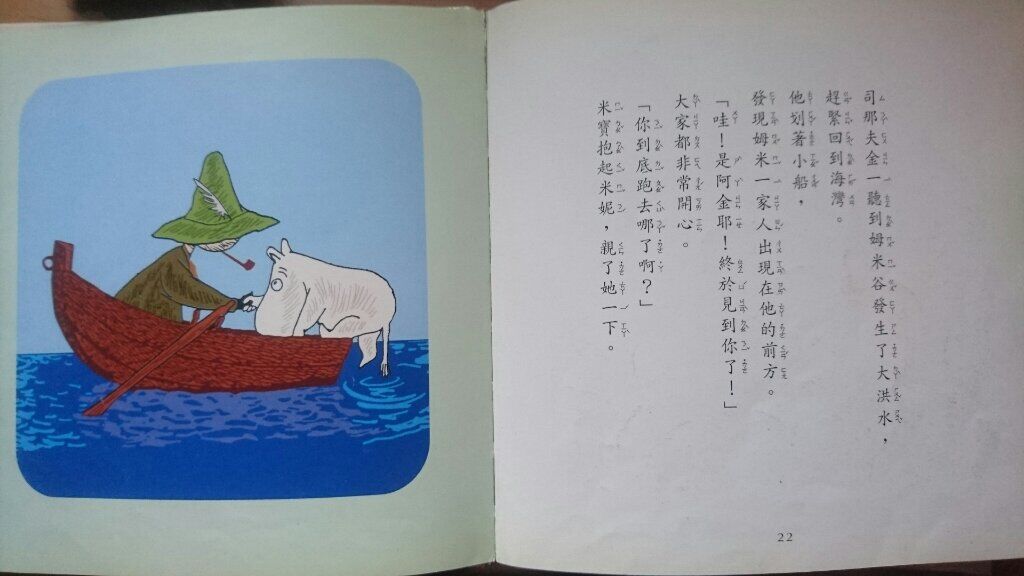 司那夫金一聽到姆米谷發生了大洪水，
趕緊回到海灣。
他划著小船，
發現姆米一家人出現在他的前方。
「哇！是阿金耶！終於見到你了！」
大家都非常開心。
「你到底跑去哪了啊？」
米寶抱起米妮，親了她一下。
22